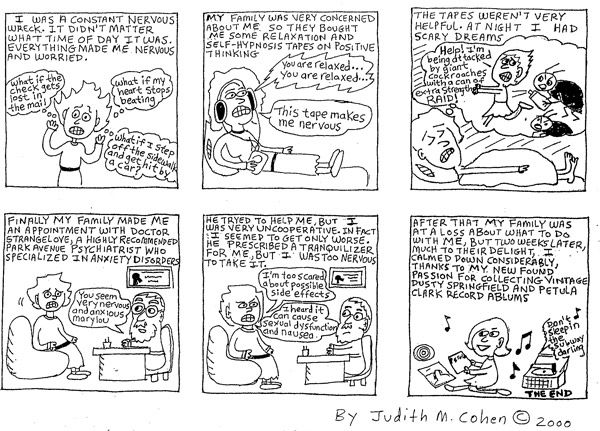 I WAS A CONSTANT NERVOUS
WRECK. IT DIDN'T MATTER
WHAT TIME OF DAY IT WAS.
EVERYTHING MADE ME NERVOUS
AND WORRIED.
what if the
check gets
lost in
the mail
what if my
heart stops
beating
what if I step
off the sidewalk
and get hit by
a car?
MY FAMILY WAS VERY CONCERNED
ABOUT ME SO THEY BOUGHT
ME SOME RELAXATION AND
SELF-HYPNOSIS TAPES ON POSITIVE
THINKING
you are relaxed...
you are relaxed...
This tape makes
me nervous
THE TAPES WEREN'T VERY
HELPFUL. AT NIGHT I HAD
SCARY DREAMS
Help! I'm
being attacked
by giant
cockroaches
with a can of
extra strength
RAID!
FINALLY MY FAMILY MADE ME
AN APPOINTMENT WITH DOCTOR
STRANGELOVE, A HIGHLY RECOMMENDED
PARK AVENUE PSYCHIATRIST WHO
SPECIALIZED IN ANXIETY DISORDERS
You seem
very nervous
and anxious
marylou
HE TRYED TO HELP ME, BUT I
WAS VERY UNCOOPERATIVE. IN FACT
I SEEMED TO GET ONLY WORSE.
HE PRESCRIBED A TRANQUILIZER
FOR ME, BUT I WAS TOO NERVOUS
TO TAKE IT.
I'm too scared
about possible
side effects
I heard it
can cause
sexual dysfunction
and nausea.
AFTER THAT MY FAMILY WAS
AT A LOSS ABOUT WHAT TO DO
WITH ME, BUT TWO WEEKS LATER,
MUCH TO THEIR DELIGHT, I
CALMED DOWN CONSIDERABLY,
THANKS TO MY NEW FOUND
PASSION FOR COLLECTING VINTAGE
DUSTY SPRINGFIELD AND PETULA
CLARK RECORD ABLUMS
Don't
sleep in
the
subway
darling
THE END
BY Judith M. Cohen © 2000